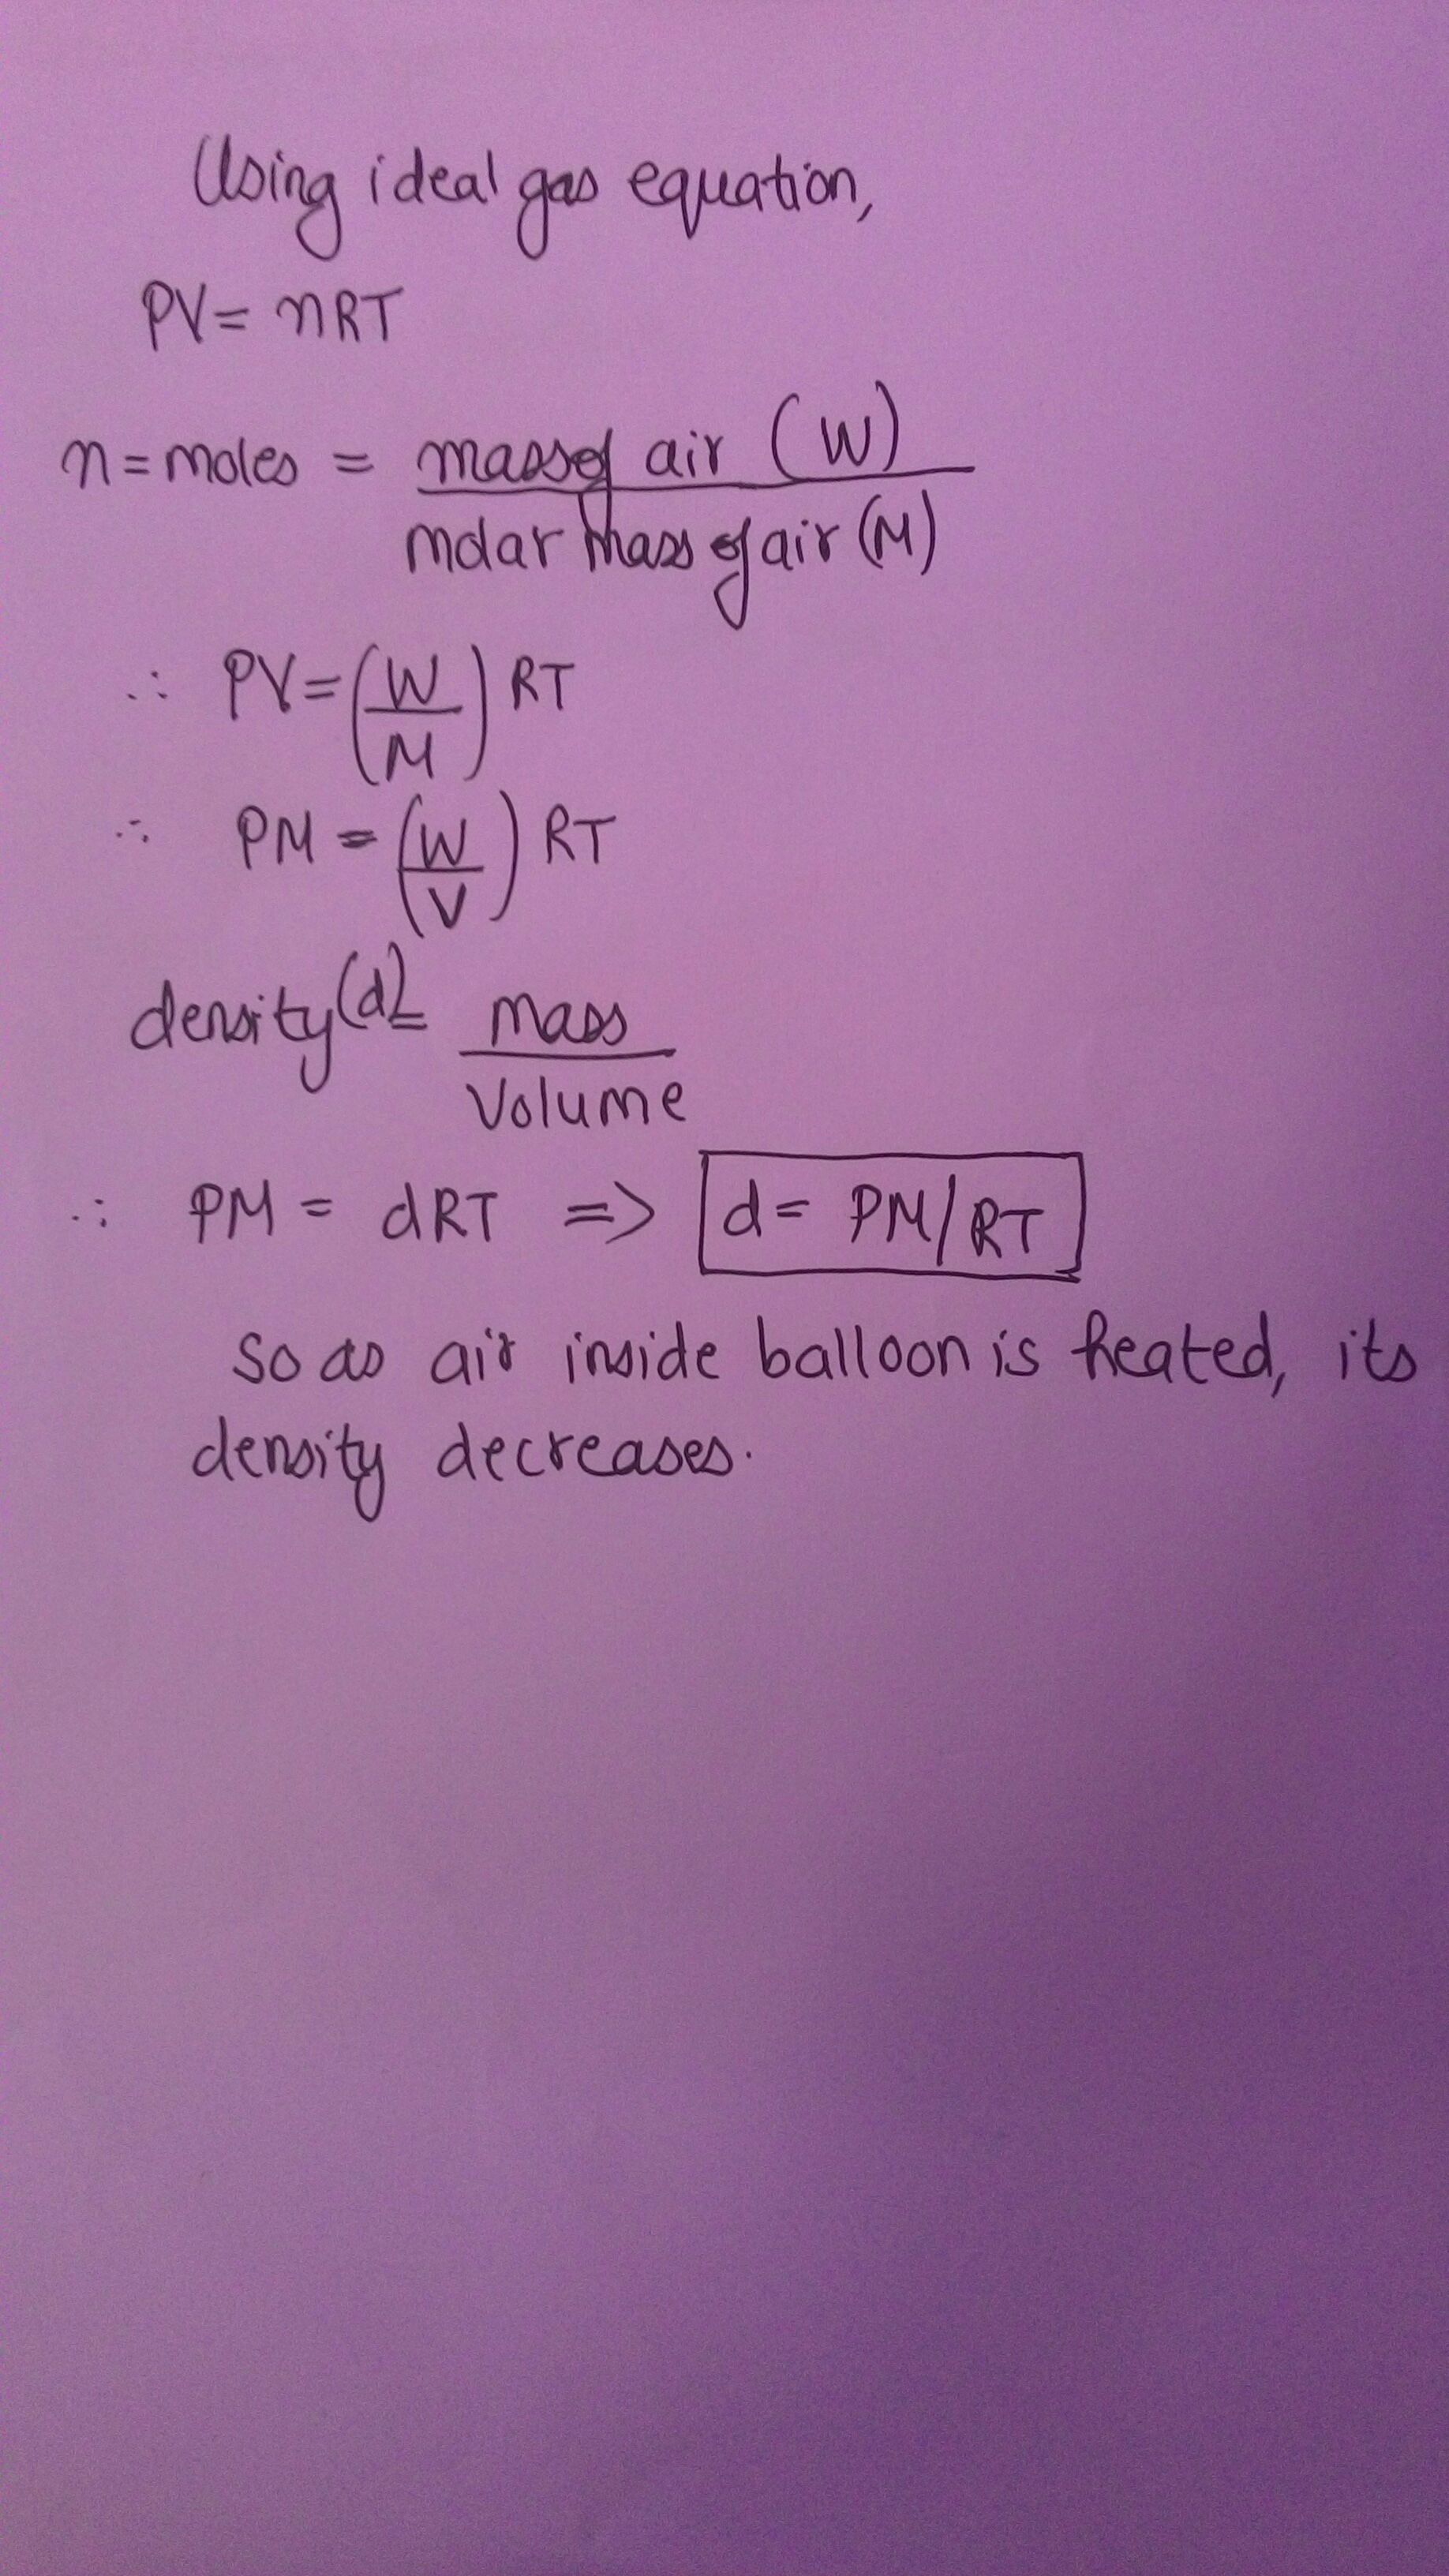 Using ideal gas equation,
PV = nRT
n = moles = mass of air (W) / molar mass of air (M)
∴ PV = (W/M) RT
∴ PM = (W/V) RT
density (d) = mass / Volume
∴ PM = dRT => d = PM/RT
so as air inside balloon is heated, its
density decreases.